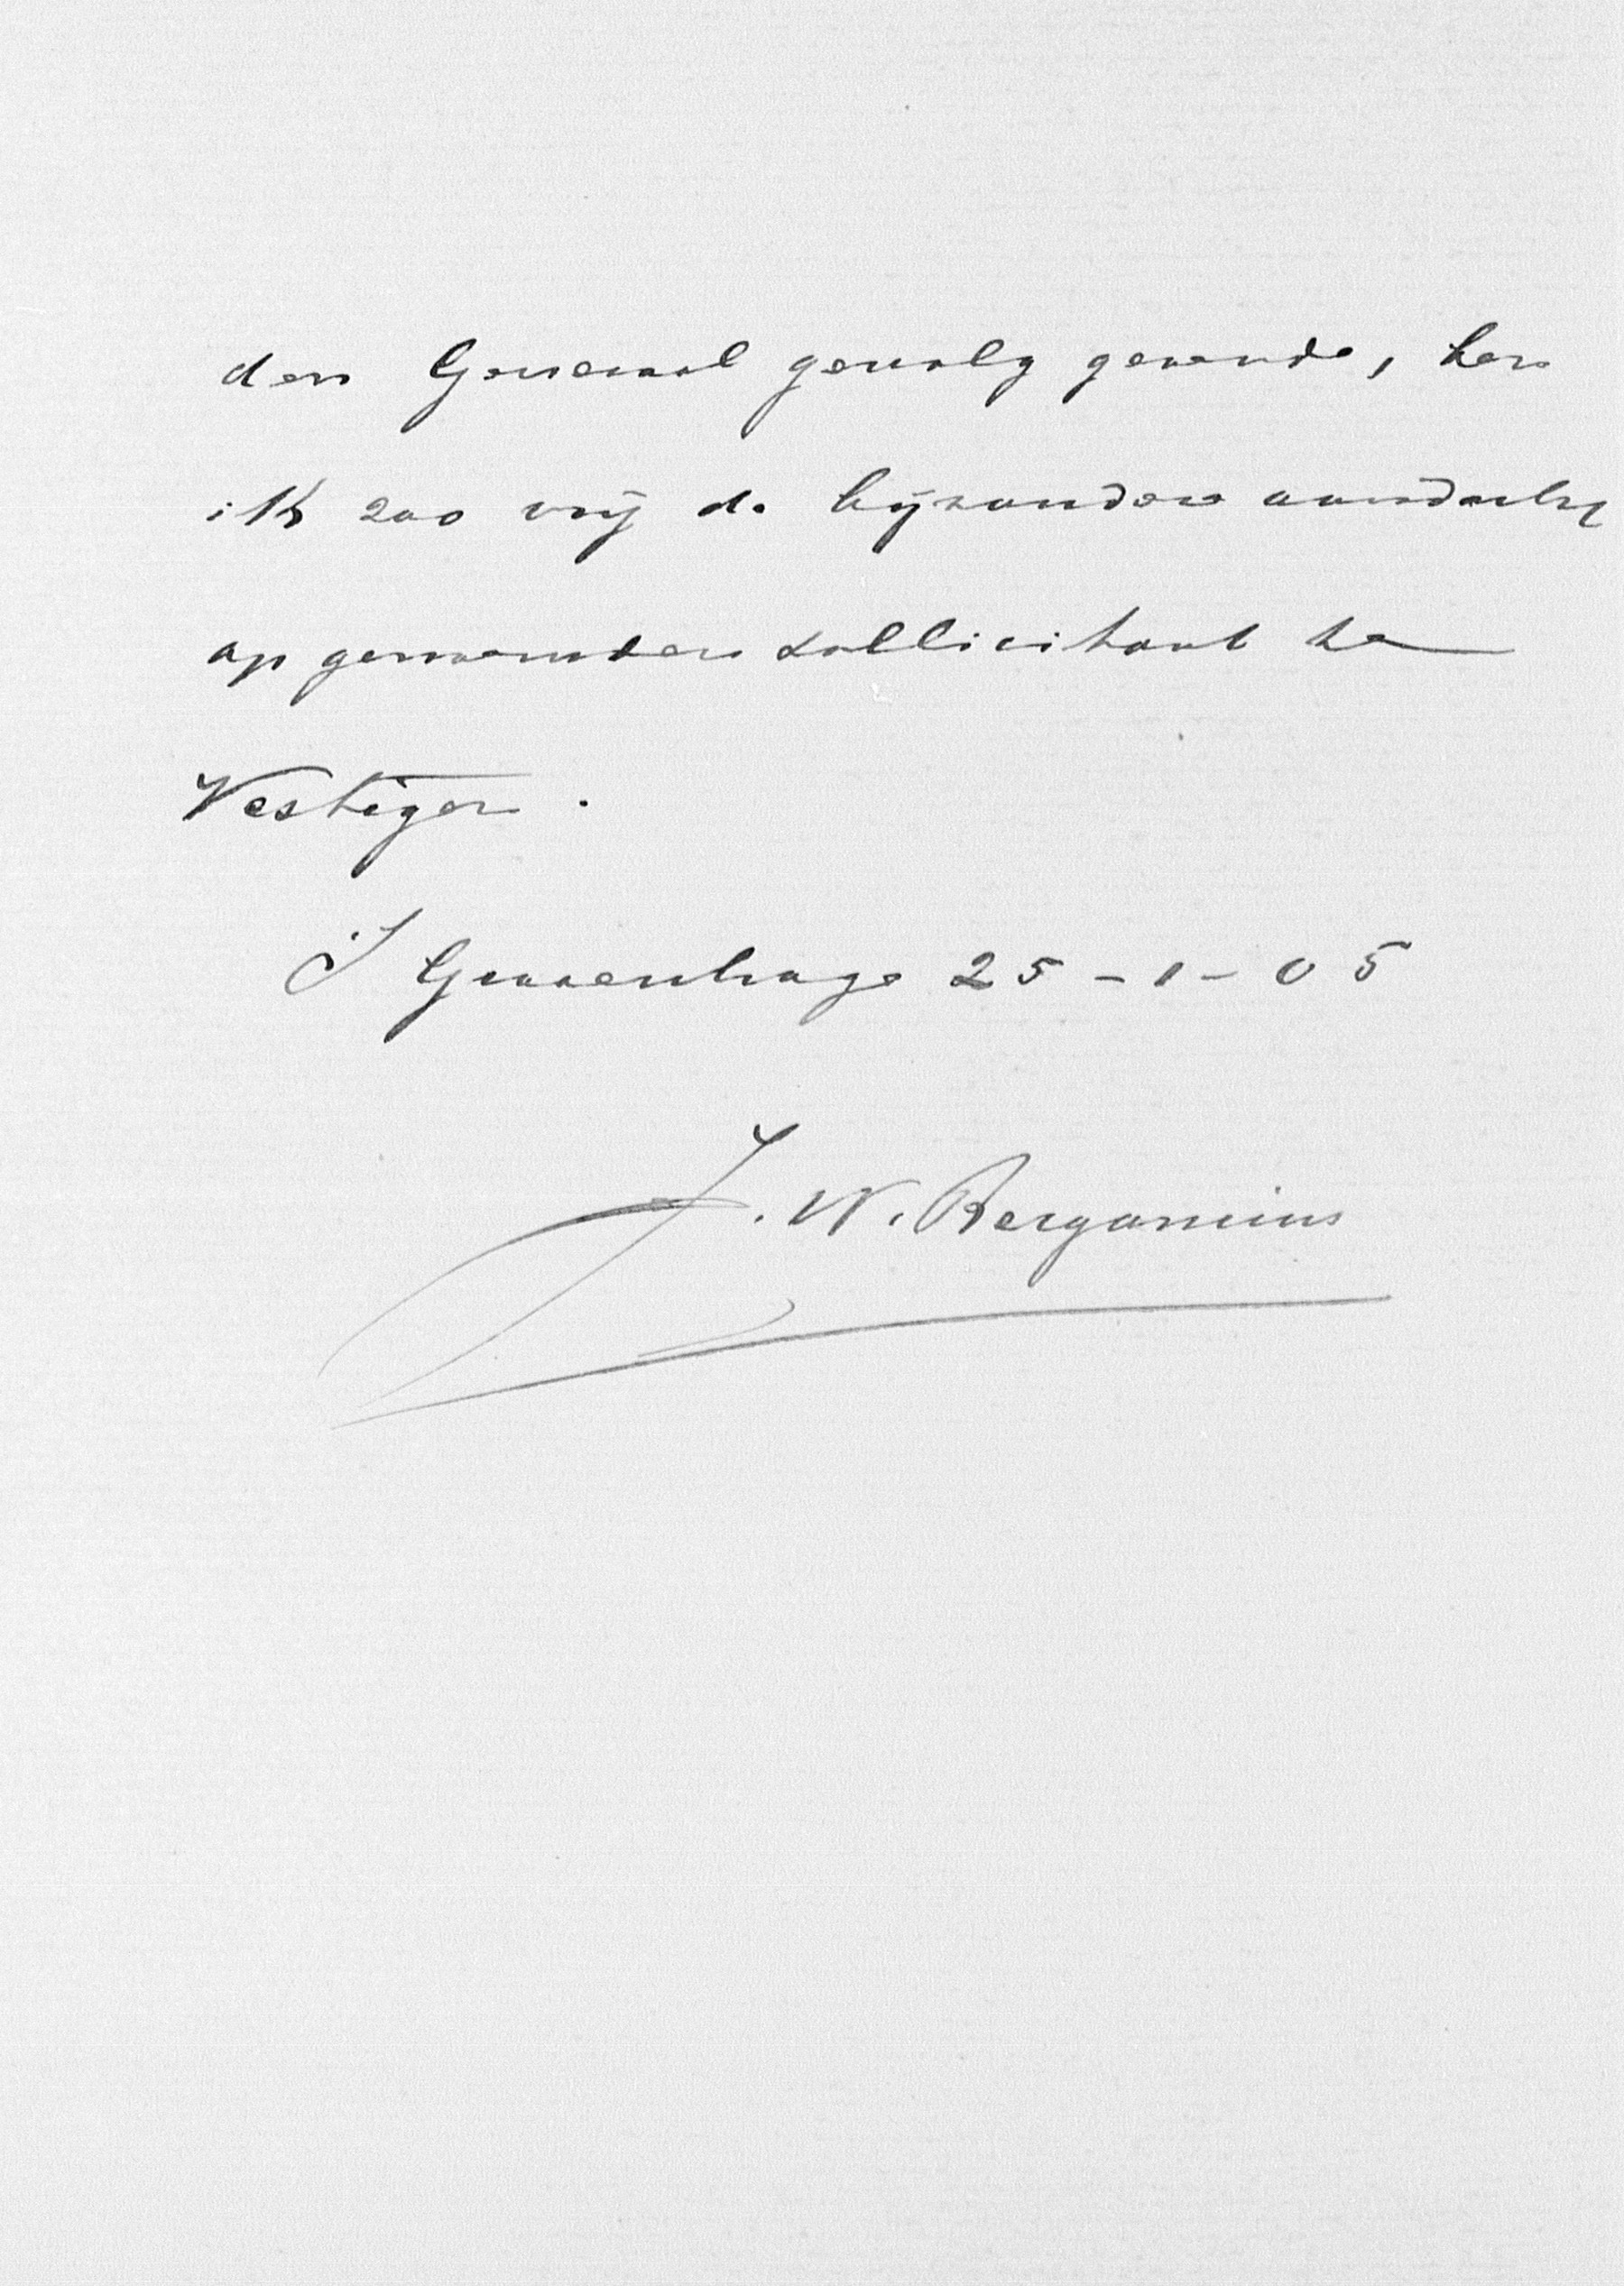 den Generaal gevolg gevende, ben
ik zoo vrij de bijzondere aandacht
op genoemden sollicitant te
Vestigen.
S Gravenhage 25-1-05
J. W. Bergansius